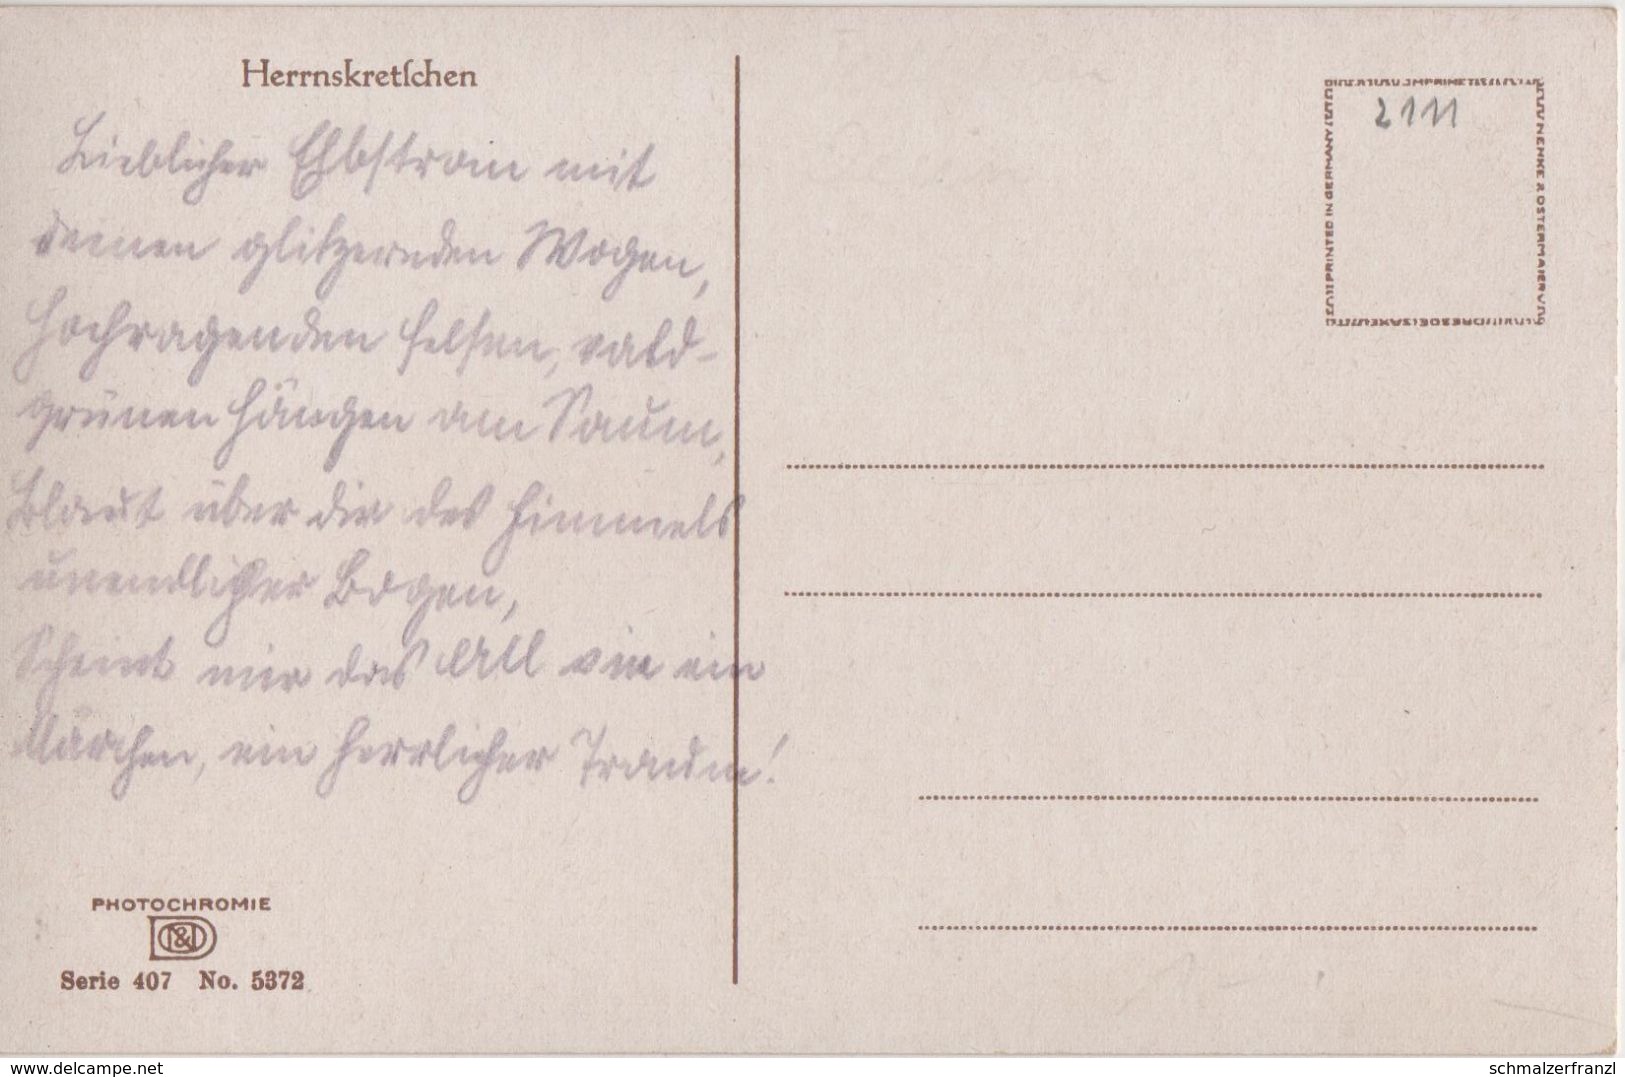 Herrnskretſchen
2111
Lieblicher Elbstrom mit
deinen glitzernden Wogen,
Hochragenden Felsen, wald-
grünen Hängen am Saum,
Blaut über dir des Himmels
unendlicher Bogen,
Scheint mir das All wie ein
Märchen, ein herrlicher Traum!
PRINTED IN GERMANY
NENKE & OSTERMAIER
DRESDEN
PHOTOCHROMIE
N&O
Serie 407 No. 5372
delcampe.net
schmalzerfranzl